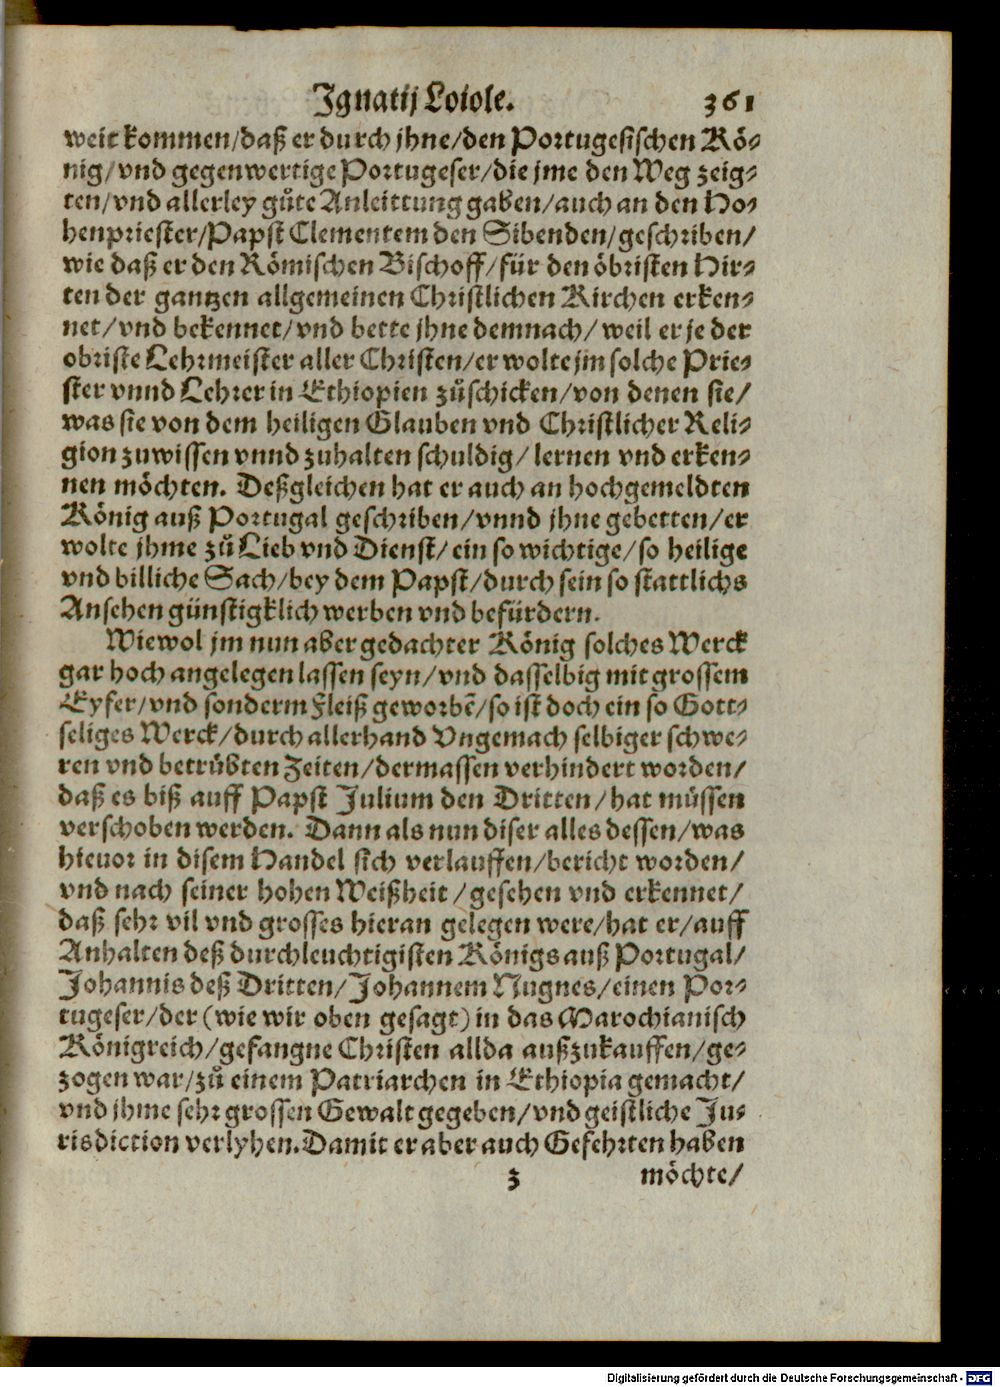 Ignatij Loiole. 361
weit kommen/daß er durch jhne/den Portugesischen Kö-
nig/vnd gegenwertige Portugeser/die jme den Weg zeig-
ten/vnd allerley gůte Anleittung gaben/auch an den Ho-
henpriester/Papst Clementem den Sibenden/geschriben/
wie daß er den Römischen Bischoff/für den öbristen Hir-
ten der gantzen allgemeinen Christlichen Kirchen erken-
net/vnd bekennet/vnd bette jhne demnach/weil er je der
obriste Lehrmeister aller Christen/er wolte jm solche Prie-
ster vnnd Lehrer in Ethiopien zůschicken/von denen sie/
was sie von dem heiligen Glauben vnd Christlicher Reli-
gion zuwissen vnnd zuhalten schuldig/lernen vnd erken-
nen möchten. Deßgleichen hat er auch an hochgemeldten
König auß Portugal geschriben/vnnd jhne gebetten/er
wolte jhme zů Lieb vnd Dienst/ein so wichtige/so heilige
vnd billiche Sach/bey dem Papst/durch sein so stattlichs
Ansehen günstigklich werben vnd befürdern.
Wiewol jm nun aber gedachter König solches Werck
gar hoch angelegen lassen seyn/vnd dasselbig mit grossem
Eyfer/vnd sonderm fleiß geworbē/so ist doch ein so Gott-
seliges Werck/durch allerhand Vngemach selbiger schwe-
ren vnd betrübten Zeiten/dermassen verhindert worden/
daß es biß auff Papst Julium den Dritten/hat müssen
verschoben werden. Dann als nun diser alles dessen/was
hieuor in disem Handel sich verlauffen/bericht worden/
vnd nach seiner hohen Weißheit/gesehen vnd erkennet/
daß sehr vil vnd grosses hieran gelegen were/hat er/auff
Anhalten deß durchleuchtigisten Königs auß Portugal/
Johannis deß Dritten/Johannem Nugnes/einen Por-
tugeser/der (wie wir oben gesagt) in das Marochianisch
Königreich/gefangne Christen allda außzukauffen/ge-
zogen war/zů einem Patriarchen in Ethiopia gemacht/
vnd jhme sehr grossen Gewalt gegeben/vnd geistliche Ju-
risdiction verlyhen. Damit er aber auch Gefehrten haben
z möchte/
Digitalisierung gefördert durch die Deutsche Forschungsgemeinschaft - DFG